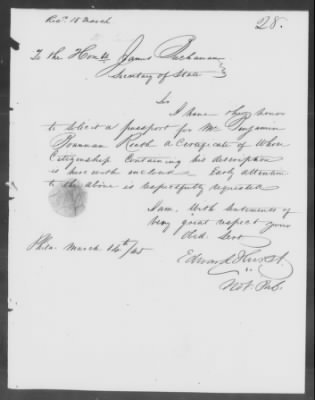 Recd. 18 March
28.
To the Honble James Buchanan
Secretary of State
Sir
I have they honor
to solicit a passport for Mr Benjamin
a Certificate of Whose
Citizenship Containing his description
is here with enclosed Early attention
to the above is respectfully requested
I am, With Sentiments of
Very great respect your
Obd. Servt
Phila. March 16th/45
Edward Hurst.
Not. Pub.